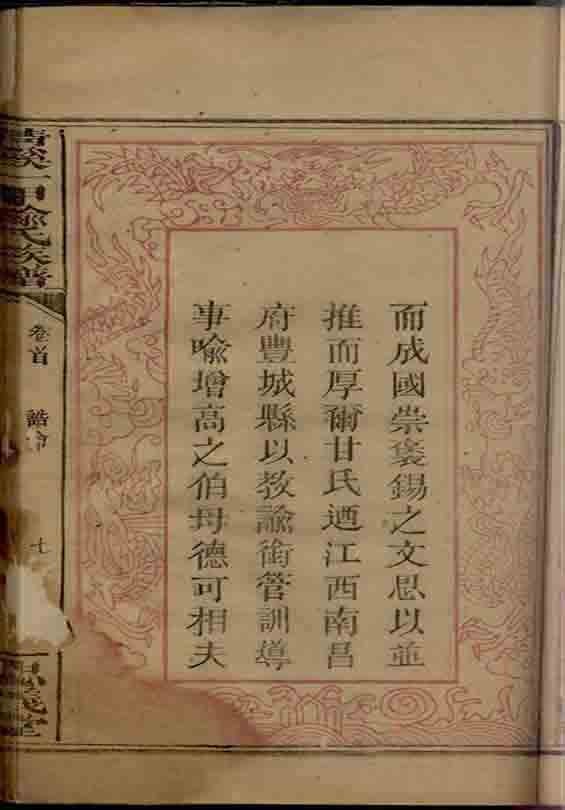 而成國崇褒錫之文恩以並
推而厚爾甘氏迺江西南昌
府豐城縣以教諭銜管訓導
事喻增高之伯母德可相夫
甲喻氏族譜
卷首
誥命
七